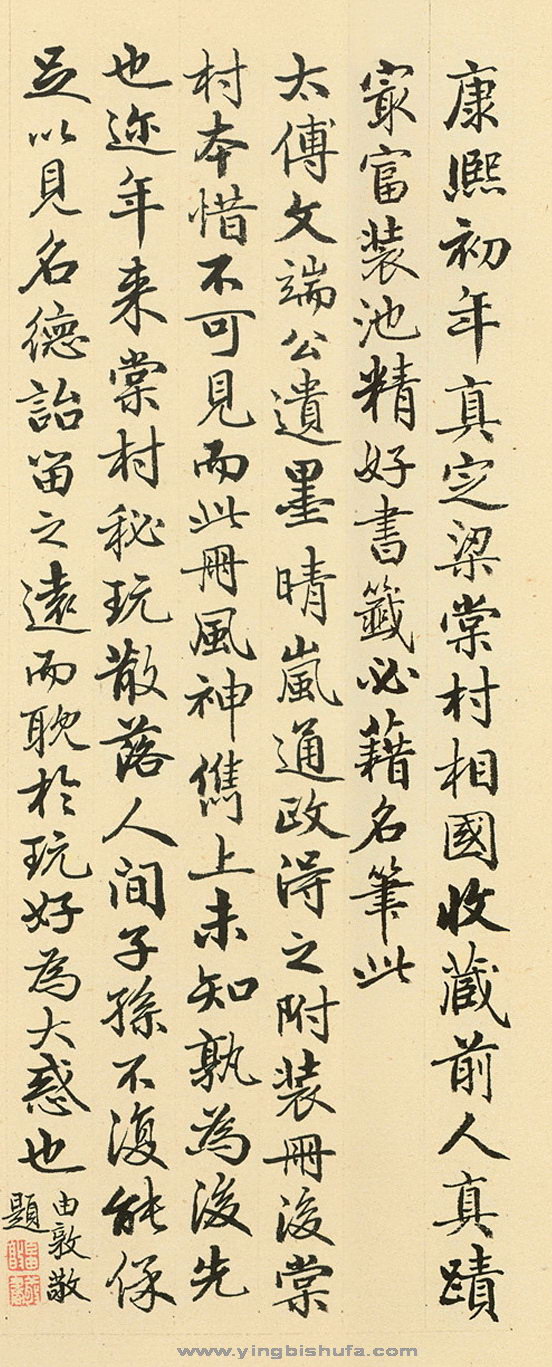 康熙初年真定梁棠村相國收蔵前人真蹟
㝡富装池精好書籤必藉名筆此
太傅文端公遺墨晴嵐通政得之附装冊後棠
村本惜不可見而此冊風神儁上未知孰為後先
也迩年来棠村秘玩散落人間子孫不復能保
足以見名德詒留之遠而耽於玩好為大惑也
由敦敬
題
www.yingbishufa.com